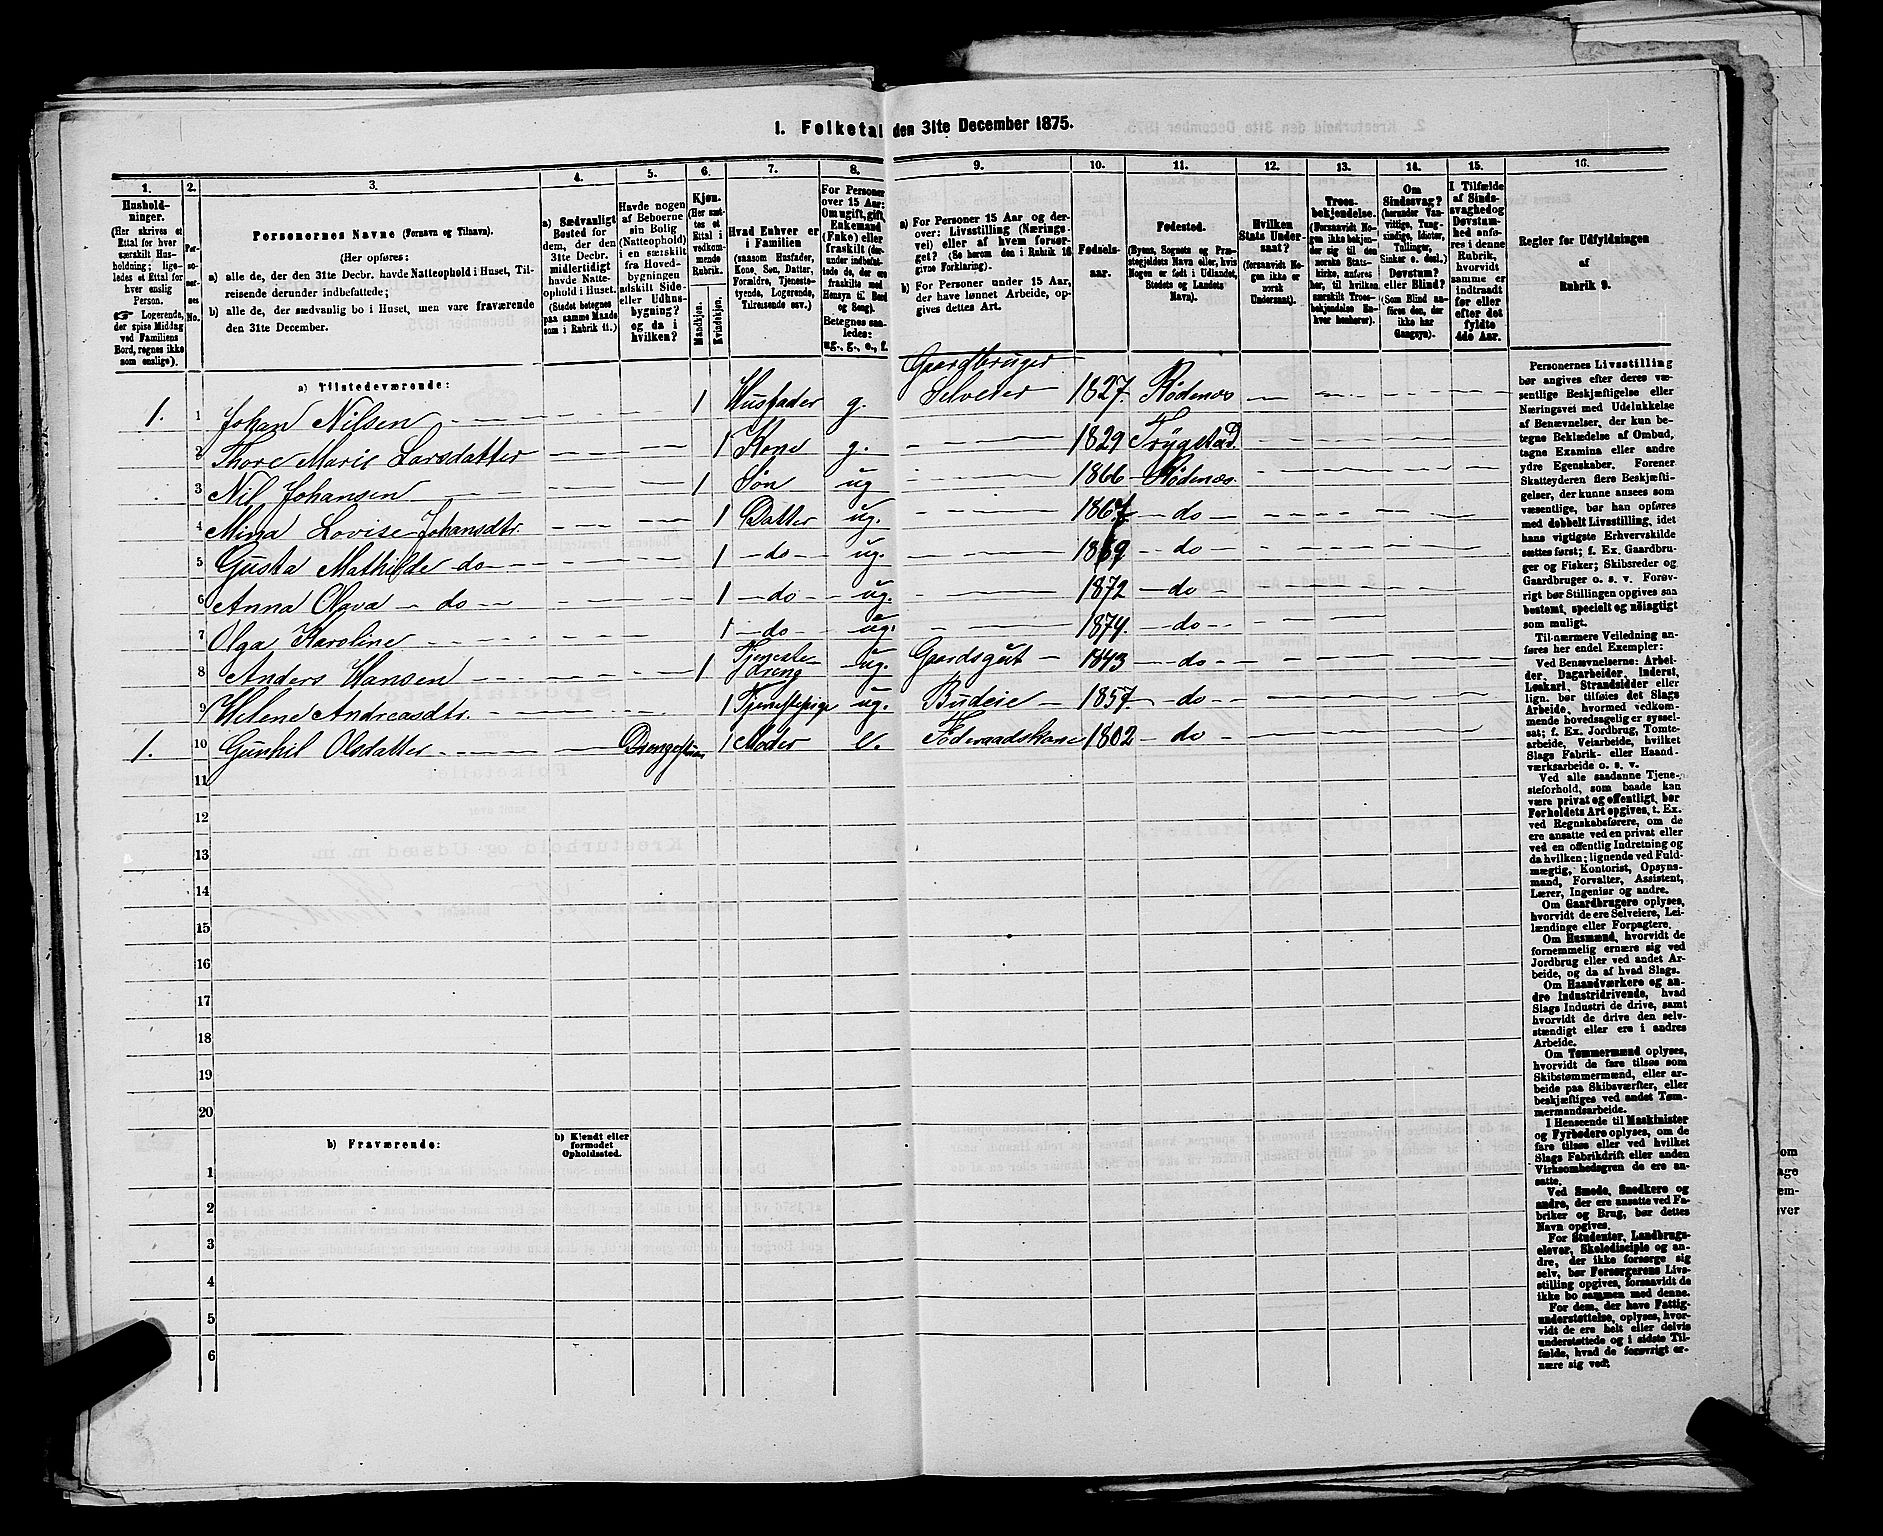 1. Folketal den 31te December 1875.
1. 2. 3. 4. 5. 6. 7. 8. 9. 10. 11. 12. 13. 14. 15. 16.
Hushold-
ninger.
(Her skrives et
Ettal for hver
særskilt Hus-
holdning; lige-
ledes et Ettal for
hver enslig
Person.
☞ Logerende,
der spise Middag
ved Familiens
Bord, regnes ikke
som enslige).
Per-
so-
ner-
nes
No.
Personernes Navne (Fornavn og Tilnavn).
(Her opføres:
a) alle de, der den 31te Decbr. havde Natteophold i Huset, Til-
reisende derunder indbefattede;
b) alle de, der sædvanlig bo i Huset, men vare fraværende
den 31te December.
a) Sædvanligt
Bosted for
dem, der den
31te Decbr.
midlertidigt
havde Natte-
ophold i Huset.
(Stedet betegnes
paa samme Maade
som i Rubrik 11.)
Havde nogen
af Beboerne
sin Bolig
(Natteophold)
i en særskilt
fra Hoved-
bygningen
adskilt Side-
eller Udhus-
bygning?
og da i
hvilken?
Kjøn.
(Her sæt-
tes et
Ettal i
vedkom-
mende
Rubrik.
Mandkjøn.
Kvindekjøn.
Hvad Enhver er
i Familien
(saasom Husfader,
Kone, Søn, Datter,
Forældre, Tjeneste-
tyende, Logerende,
Tilreisende osv.)
For Personer
over 15 Aar:
Om ugift, gift,
Enkemand
(Enke) eller
fraskilt (der-
under indbefat-
tede de, der ere
fraskilte med
Hensyn til Bord
og Seng).
Betegnes saa-
ledes:
ug., g., e., f.
a) For Personer 15 Aar og der-
over: Livsstilling (Nærings-
vei) eller af hvem forsør-
get? (Se herom den i Rubrik 16
givne Forklaring).
b) For Personer under 15 Aar,
der have lønnet Arbeide, op-
gives dettes Art.
Fødsels-
aar.
Fødested.
(Byens, Sognets og Præ-
stegjeldets Navn eller, hvis
Nogen er født i Udlandet,
Stedets og Landets
Navn).
Hvilken
Stats Under-
saat?
(forsaavidt No-
gen ikke er
norsk
Undersaat).
Troes-
bekjendelse.
(Forsaavidt No-
gen ikke bekjen-
der sig til den
norske Stats-
kirke, anføres
her, til hvilken
særskilt Troes-
bekjendelse En-
hver henhører).
Om
Sindssvag?
(herunder Van-
vittige, Tung-
sindige, Idioter,
Tullinger,
Sinker o. desl.)
Døvstum?
eller Blind?
(Som Blind an-
føres den, der
ikke har
Gangsyn).
I Tilfælde
af Sinds-
svaghed og
Døvstum-
hed anfø-
res i denne
Rubrik,
hvorvidt
samme er
indtraadt
før eller
efter det
fyldte
4de Aar.
Regler for Udfyldningen
af
Rubrik 9.
a) Tilstedeværende:
1. 1 Johan Nilsen 1 Husfader g. Gaardbruger Selveier 1827. Rødenæs
2 Thore Marie Larsdatter 1 Kone g. 1829 Trygstad.
3 Nil Johansen 1 Søn ug 1866 Rødenæs
4 Mina Lovise Johansdtr 1 Datter ug. 1867 do
5 Gusta Mathilde do 1 do ug. 1869 do
6 Anna Olava do 1 do ug. 1872 do
7 Olga Karoline 1 do ug. 1874. do
8 Anders Hansen 1 Tjeneste-dreng ug. Gaardsgut 1843 do
9 Helene Andreasdtr. 1 Tjenestepige ug. Budeie 1857 do
1. 10 Gunhil Olsdatter Drengestuen 1 Moder e. Føderaadskone 1802 do
11
12
13
14
15
16
17
18
19
20
b) Fraværende:
b) Kjendt eller
formodet
Opholdssted.
1
2
3
4
5
6
Personernes Livsstilling
bør angives efter deres væ-
sentlige Beskjæftigelse eller
Næringsvei med Udelukkelse
af Benævnelser, der kun be-
tegne Beklædelse af Ombud,
tagne Examina eller andre
ydre Egenskaber. Forener
Skatteyderen flere Beskjæfti-
gelser, der kunne ansees som
væsentlige, bør han opføres
med dobbelt Livsstilling, idet
hans vigtigste Erhvervskilde
sættes først; f. Ex. Gaardbru-
ger og Fisker; Skibsreder og
Gaardbruger o. s. v. Forøv-
rigt bør Stillingen opgives saa
bestemt, specielt og nøiagtigt
som muligt.
Til nærmere Veiledning an-
føres her endel Exempler:
Ved Benævnelserne: Arbei-
der, Dagarbeider, Inderst,
Løskarl, Strandsidder eller
lign. bør tilføies det Slags
Arbeide, hvormed vedkom-
mende hovedsagelig er syssel-
sat; f. Ex. Jordbrug, Tomte-
arbeide, Veiarbeide, hvilket
Slags Fabrik- eller Haand-
værksarbeide o. s. v.
Ved alle saadanne Tjene-
steforhold, som baade kan
være privat og offentligt, bør
Forholdets Art opgives, t. Ex.
ved Regnskabsførere, om de
ere ansatte ved en privat eller
ved en offentlig Indretning og
da hvilken; lignende ved Fuld-
mægtig, Kontorist, Opsyns-
mand, Forvalter, Assistent,
Lærer, Ingeniør og andre.
Om Gaardbrugere oplyses,
hvorvidt de ere Selveiere, Lei-
lændinge eller Forpagtere.
Om Husmænd, hvorvidt de
fornemmelig ernære sig ved
Jordbrug eller ved andet Ar-
beide, og da af hvad Slags.
Om Haandværkere og an-
dre Industridrivende, hvad
Slags Industri de drive, samt
hvorvidt de drive den selv-
stændigt eller ere i andres
Arbeide.
Om Tømmermænd oplyses,
hvorvidt de fare tilsøs som
Skibstømmermænd, eller ar-
beide paa Skibsværfter, eller
beskjæftiges ved andet Tøm-
mermandsarbeide.
I Henseende til Maskinister
og Fyrbødere oplyses, om de
fare tilsøs eller ved hvilket
Slags Fabrikdrift eller anden
Virksomhedsgren de ere an-
satte.
Ved Smede, Snedkere og
andre, der ere ansatte ved Fa-
briker og Brug, bør dettes
Navn opgives.
For Studenter, Landbrugs-
elever, Skoledisciple og an-
dre, der ikke forsørge sig
selv, bør Forsørgerens Livs-
stilling opgives, forsaavidt de
ikke bo sammen med denne.
For dem, der have Fattig-
understøttelse, oplyses, hvor-
vidt de ere helt eller delvis
understøttede og i sidste Til-
fælde, hvad de forøvrigt er-
nære sig ved.